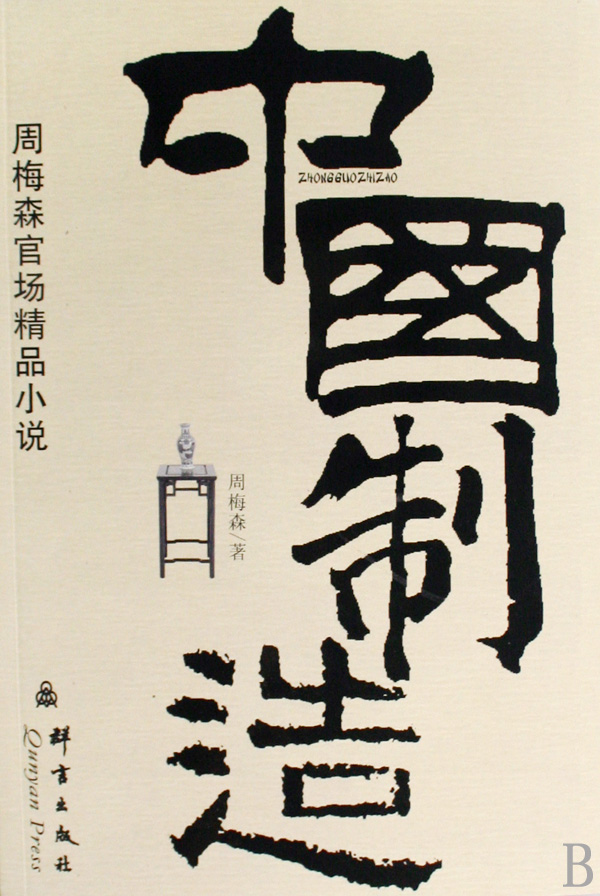 中國制造
ZHONGGUOZHIZAO
周梅森官场精品小说
周梅森/著
群言出版社
Qunyan Press
B